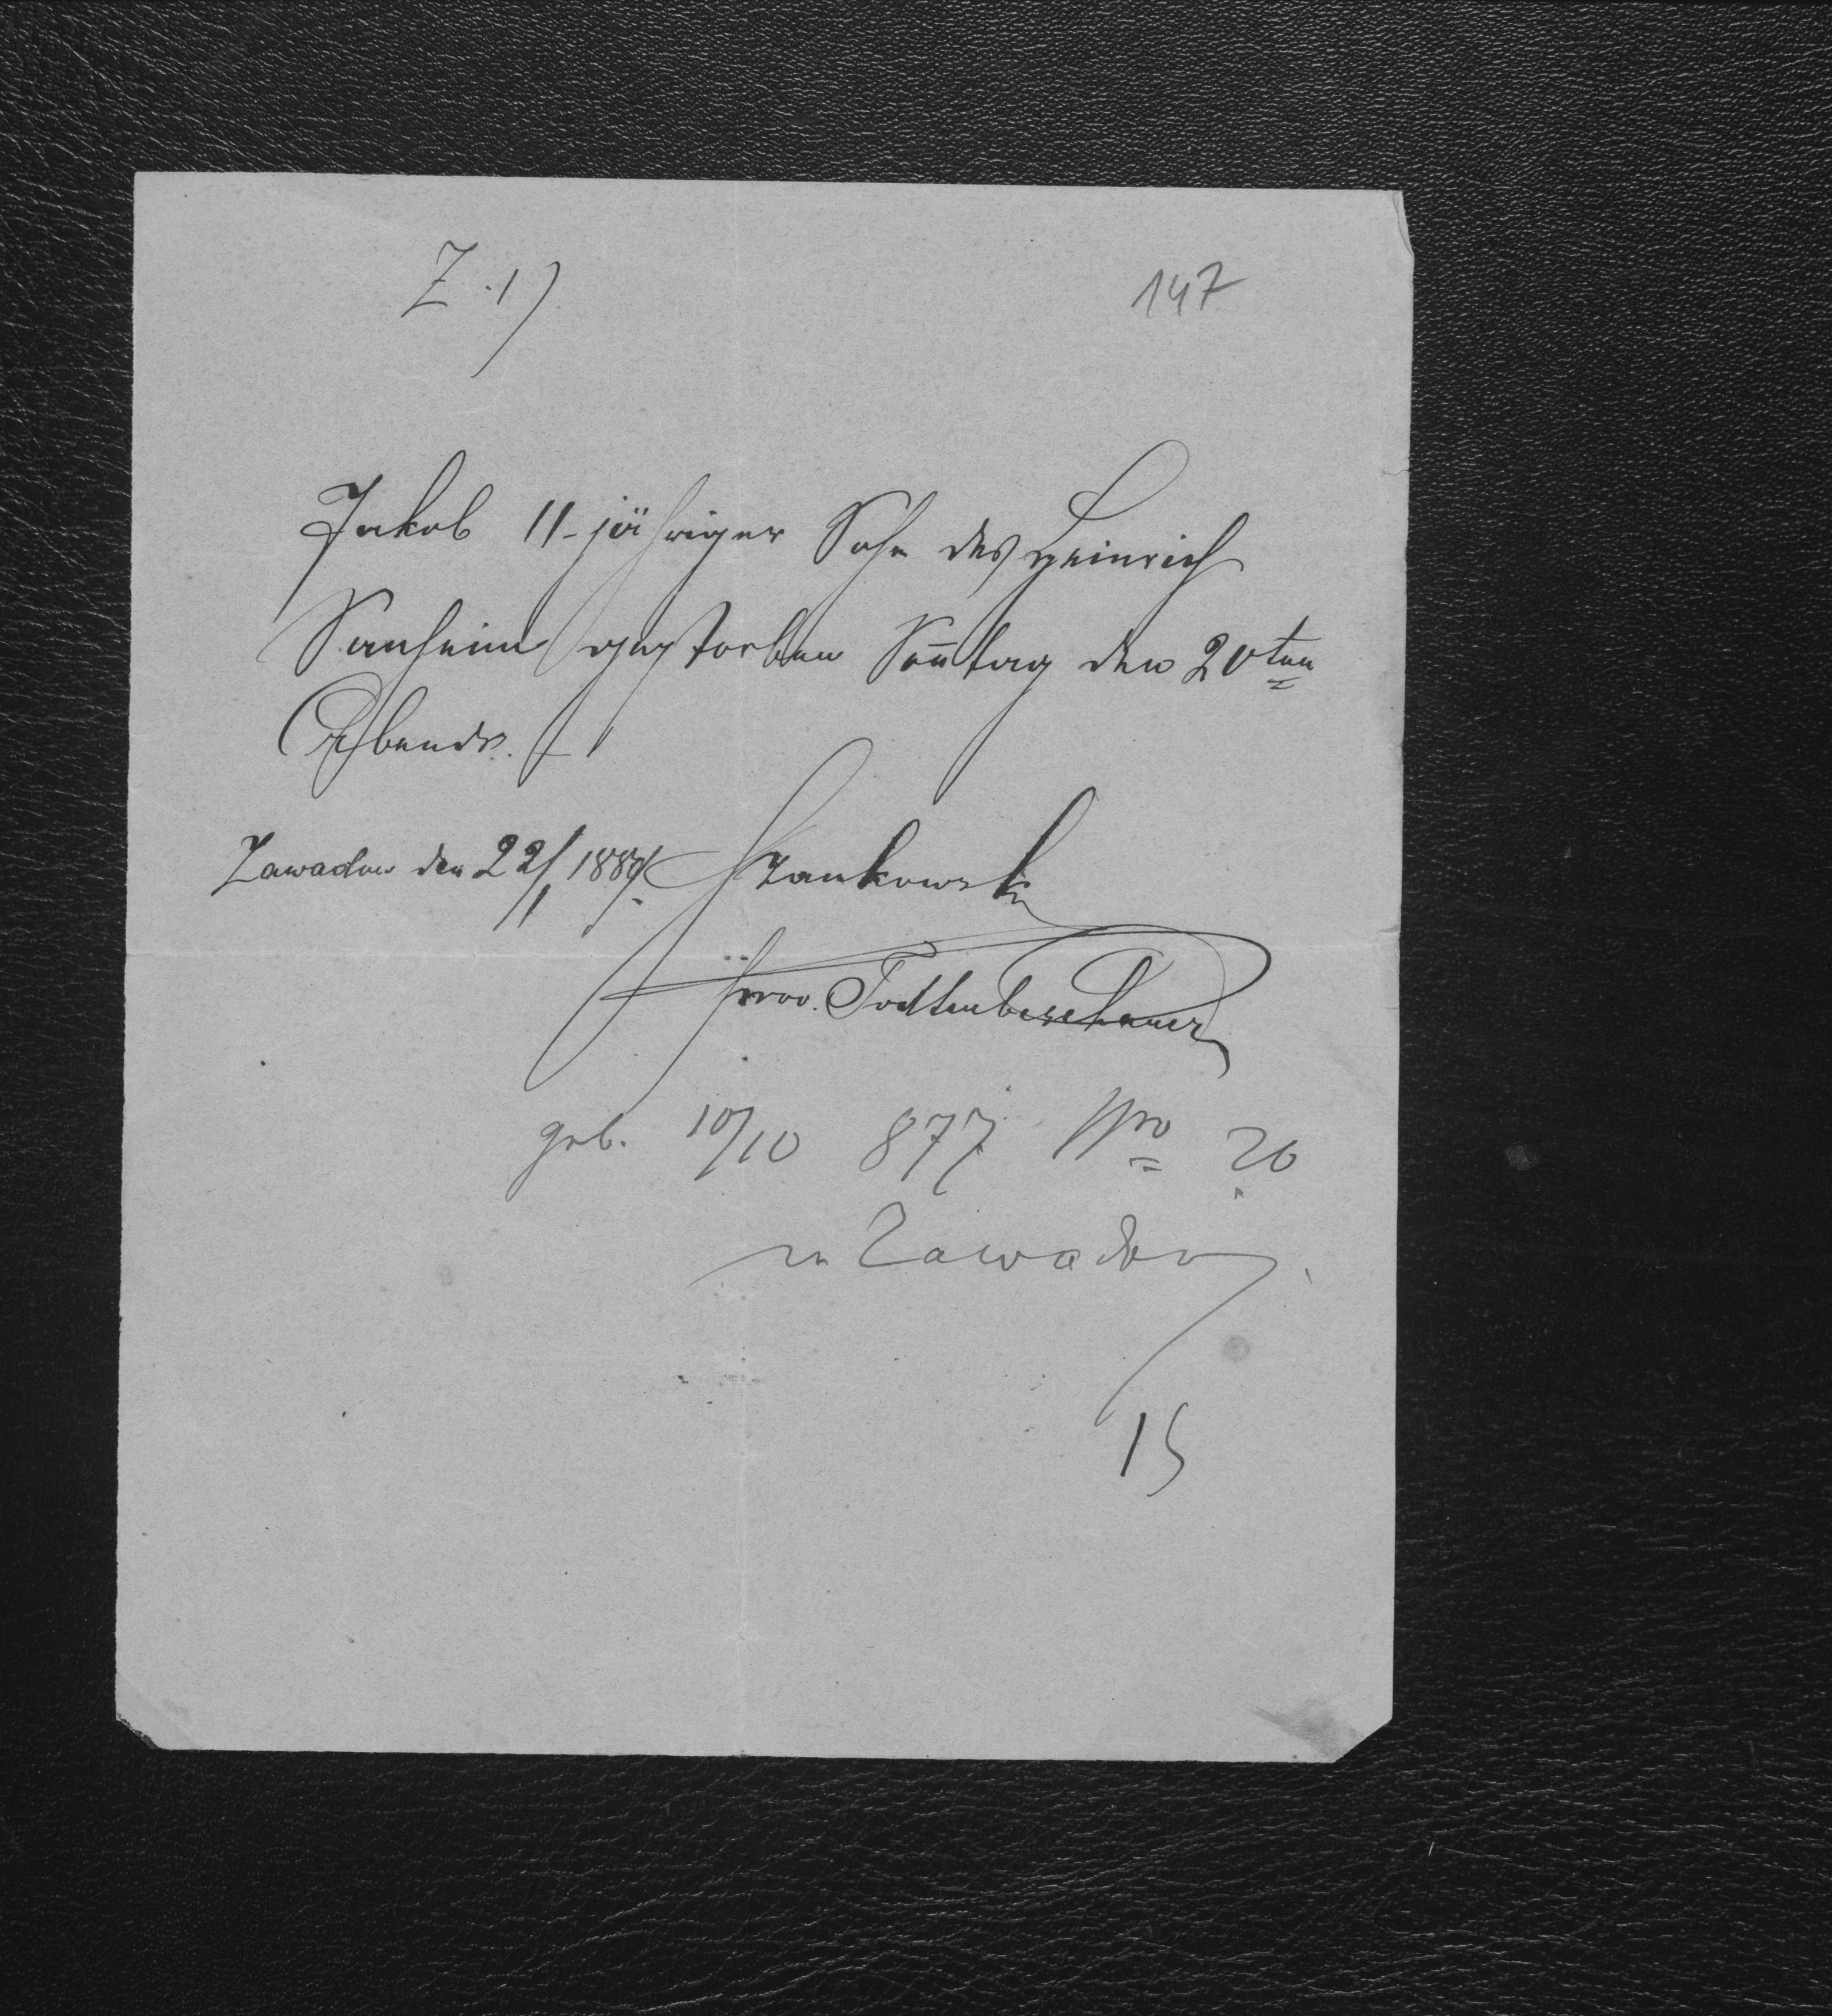 Z. 1)
147
Jakob 11-jähriger Sohn des Heinrich
Sauheim gestorben Son̄tag den 20ten
Abends.
Zawadow den 22/1 1889. Jankowski
prov. Todtenbeschauer
geb. 10/10 877 Nro 20
in Zawadow.
15